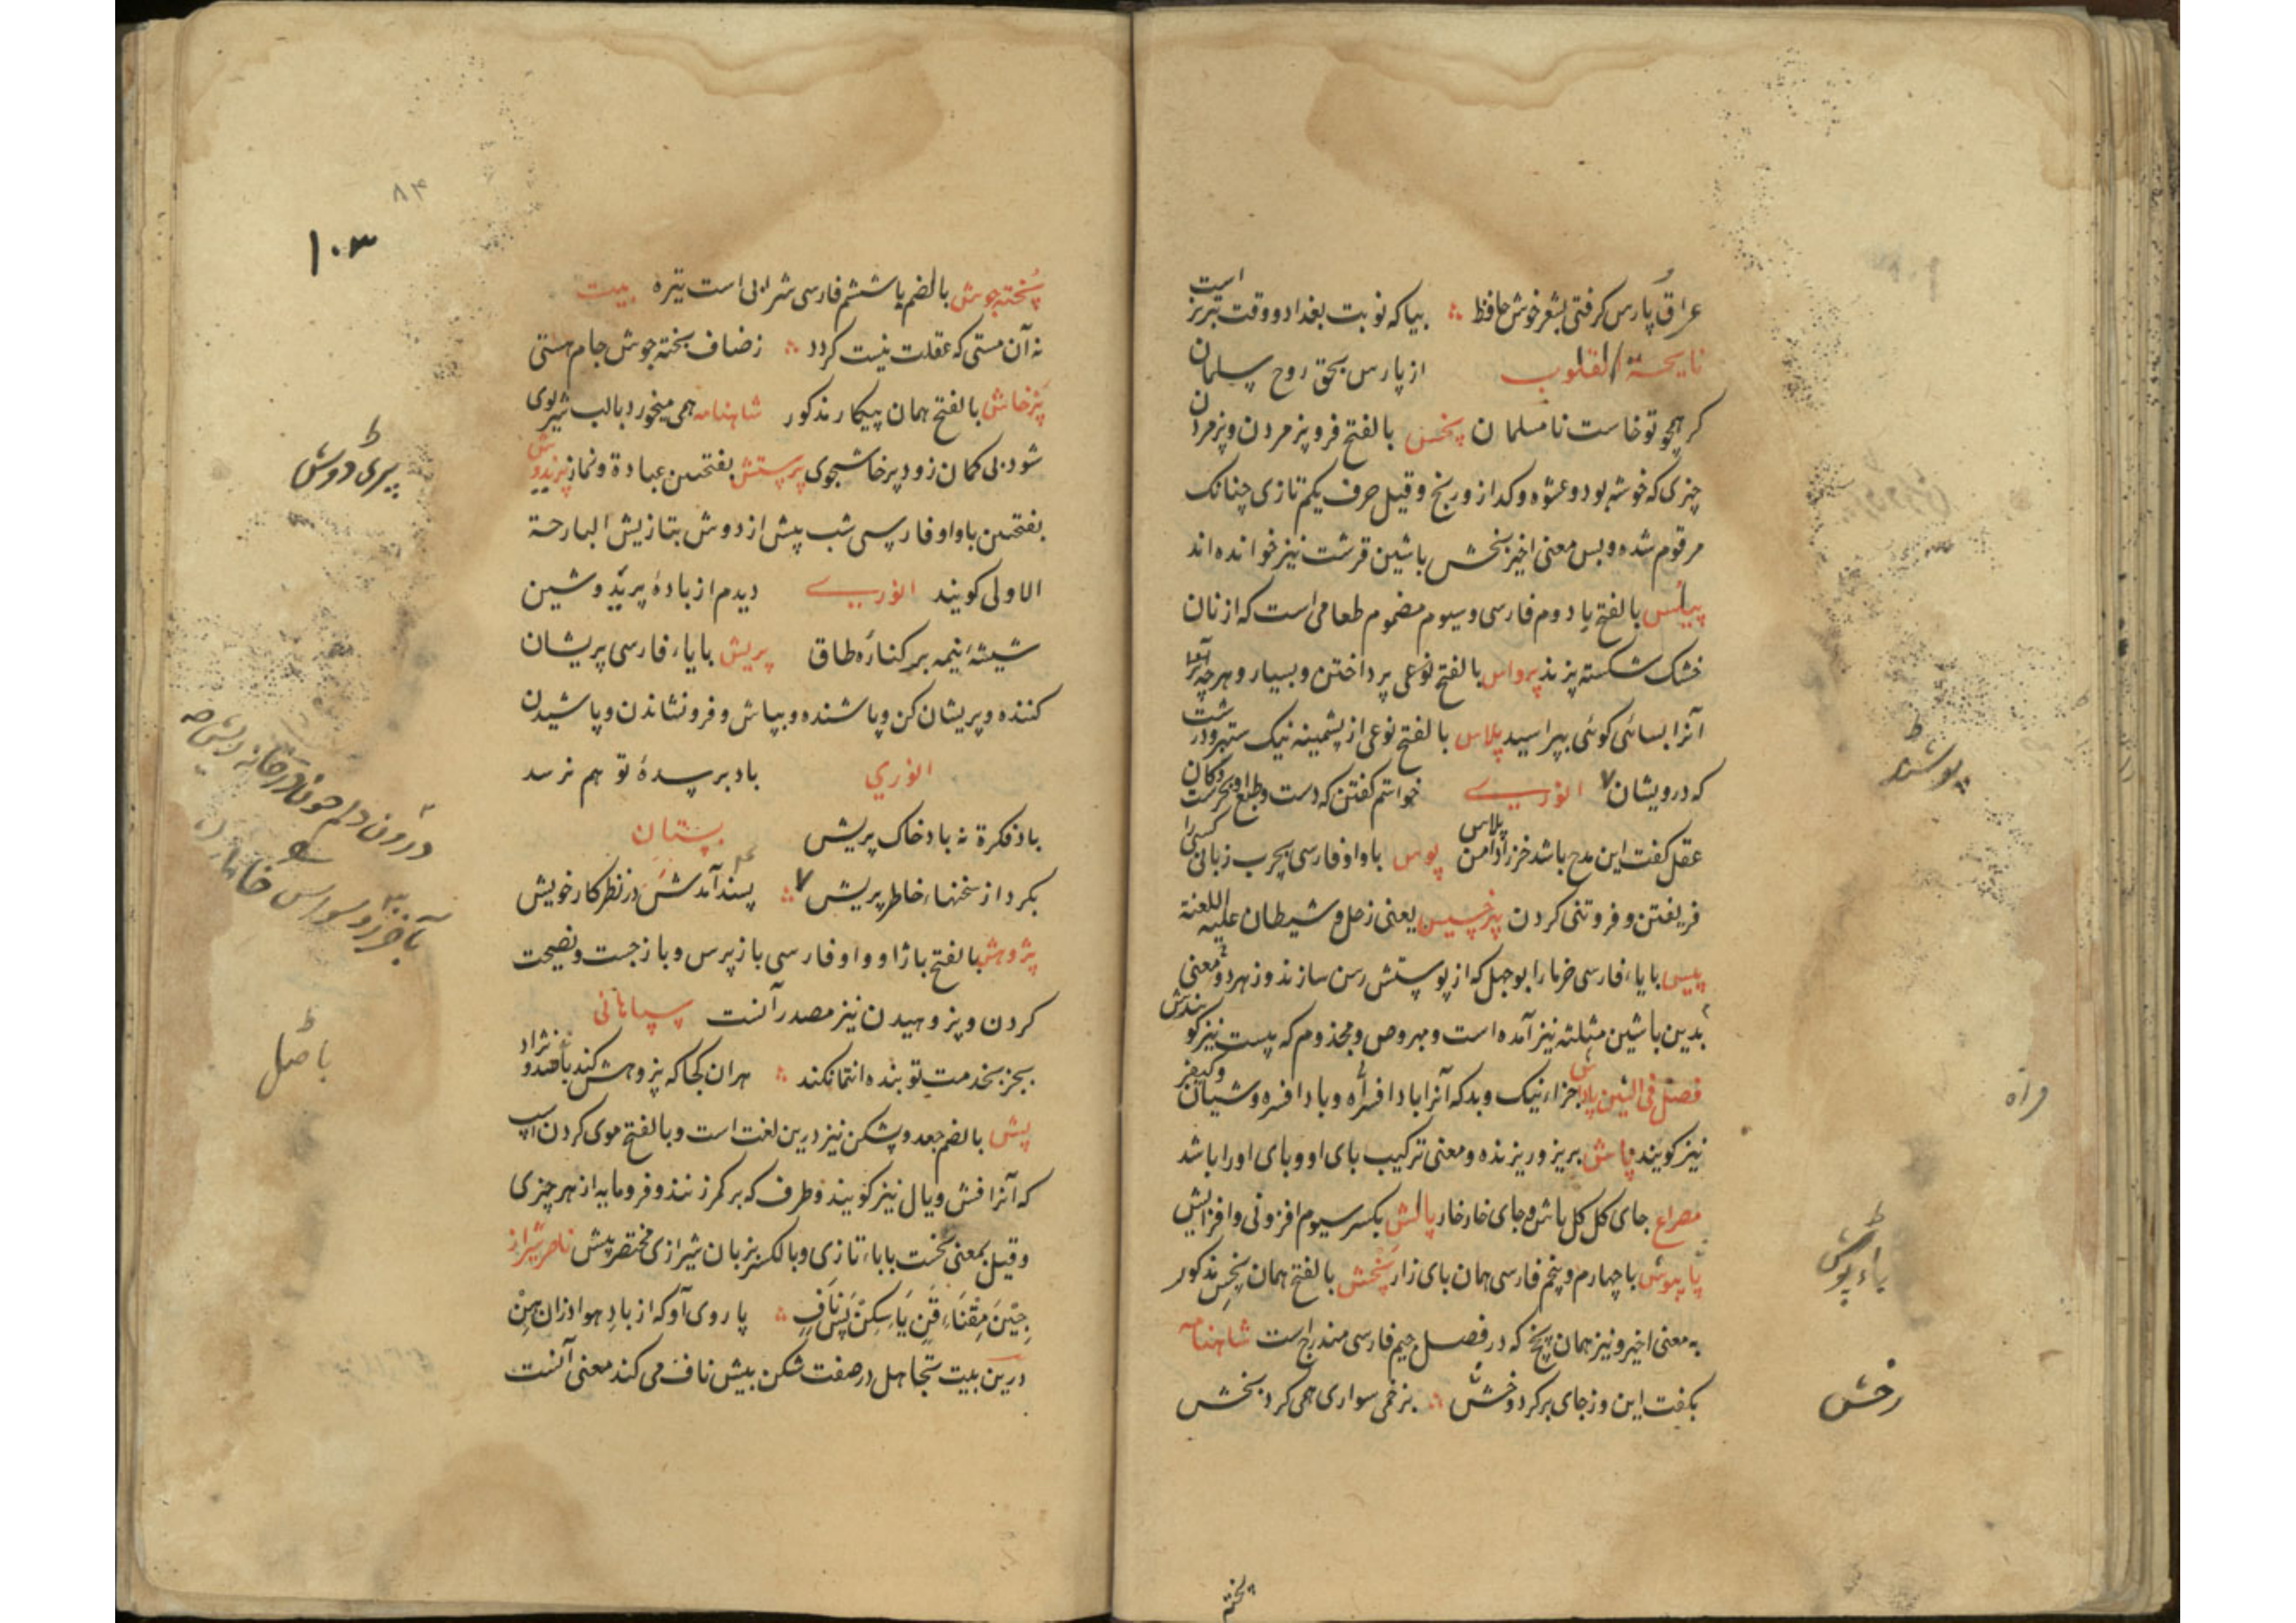 عراق و پارس گرفتی بشعر خوش حافظ ؞ بیا که نوبت بغداد و وقت تبریز است
القلوب از پارس بحق روح سلمان
کر همچو تو خاست نامسلمان پخس بالفتح فرو پژمردن و پژمردن
چیزی که خوشه بود و عشوه و کداز و رنج و قیل حرف یکم تازی چنانک
مرقوم شده و بس معنی اخیر بخش باشین قرشت نیز خوانده اند
بالفتح با دوم فارسی و سیوم مضموم طعامی است که از نان
خشک شکسته پزند پرواس بالفتح نوعی پرداختن و بسیار و هرچه
آنرا بسائی کوئی بپراسید پلاس بالفتح نوعی از پشمینه نیک ستبر و درشت
که درویشان انوری خواستم کفتن که دست و طبع او بحرست و کان
عقل کفت این مدح باشد خرز ادامن پلاس پوس باواو فارسی بچرب زبانی کسی را
فریفتن و فروتنی کردن یعنی زحل و شیطان علیه اللعنة
پیس با یاء فارسی خرما را بوجهل که از پوستش رسن سازند و زهر دو معنی
بدین باشین مثلثه نیز آمده است و مبروص و مجذوم که پیست نیز کویندش
فصل فی الشین پاداش جزاء نیک و بد که آنرا باد افراه و باد افره و شیان و کیفر
نیز کویند پاش بریز و ریزنده و معنی ترکیب بای او و بای او را باشد
مصراع جای کل کل باش و جای خار خار پالش بکسر سیوم افزونی و افزایش
با چهارم و پنجم فارسی همان بای زار پخش بالفتح همان پخس مذکور
به معنی اخیر و نیز همان پخ که در فصل جیم فارسی مندرج است شاهنامه
بکفت این و ز جای بر کرد رخش ؞ بزخمی سواری همی کرد بخش
پخته
پوشند
پای پوش
رخش
۸۴
۱۰۳
پخته جوش بالضم با ششم فارسی شرابی است تیره بیت
نه آن مستی که عقلت نیست کردد ؞ ز صاف پخته جوش جام هستی
پرخاش بالفتح همان پیکار مذکور شاهنامه همی میخورد با لب شیر بوی
شود بی کمان زود پرخاشجوی پرستش بفتحتین عبادة و نماز پریدوش
بفتحتین باواو فارسی شب پیش از دوش بتازیش البارحة
الاولی کویند انوری دیدم از بادۀ پریدوشین
شیشۀ نیمه بر کنارۀ طاق پریش با یاء فارسی پریشان
کننده و پریشان کن و پاشنده و بپاش و فرو نشاندن و پاشیدن
انوری باد بر سدۀ تو هم نرسد
باد فکرة نه باد خاک پریش بستان
بکرد از سخنهاء خاطر پریش ؞ پسند آمدش در نظر کار خویش
پژوهش بالفتح با ژا و واو فارسی باز پرس و باز جست و نصیحت
کردن و پژوهیدن نیز مصدر آنست سپاهانی
بجز بخدمت تو بنده انتما نکند ؞ هر آن کجا که پژوهش کند نژاد
پش بالضم جعد و پشکن نیز درین لغت است و بالفتح موی کردن اسپ
که آنرا فش و یال نیز کویند و طرف که بر کمر زنند و فرومایه از هر چیزی
و قیل بمعنی نخست بباء تازی و بالکسر بزبان شیرازی مختصر پیش
؞ یا روی آو که از باد هوا
درین بیت بتجاهل در صفت شکن بیش ناف می کند معنی آنست
پری دوش
با اصل